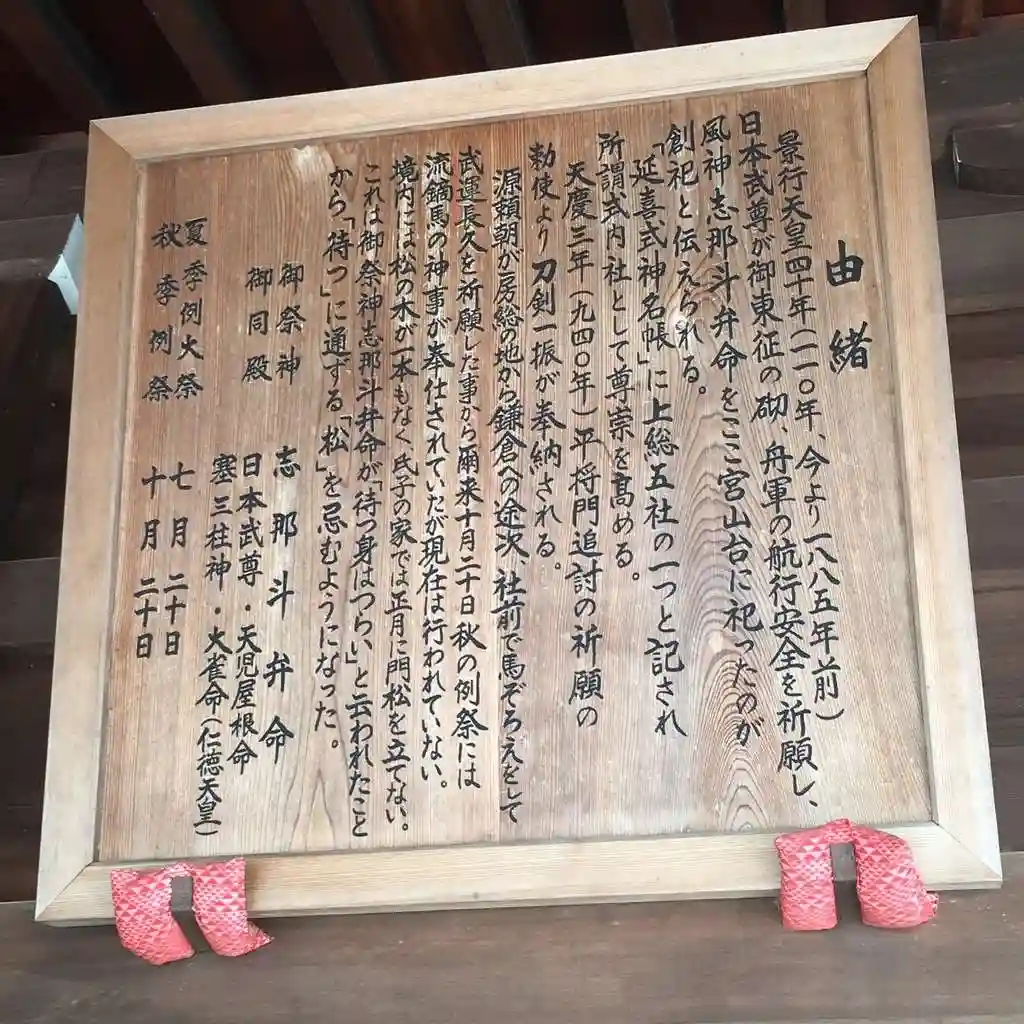 由緒
景行天皇四十年(一一〇年、今より一八八五年前)
日本武尊が御東征の砌、舟軍の航行安全を祈願し、
風神志那斗弁命をここ宮山台に祀ったのが
創祀と伝えられる。
「延喜式神名帳」に上総五社の一つと記され
所謂式内社として尊崇を高める。
天慶三年(九四〇年)平将門追討の祈願の
勅使より刀剣一振が奉納される。
源頼朝が房総の地から鎌倉への途次、社前で馬ぞろえをして
武運長久を祈願した事から爾来十月二十日秋の例祭には
流鏑馬の神事が奉仕されていたが現在は行われていない。
境内には松の木が一本もなく氏子の家では正月に門松を立てない。
これは御祭神志那斗弁命が「待つ身はつらい」と云われたこと
から「待つ」に通ずる「松」を忌むようになった。
御祭神 志那斗弁命
御同殿 日本武尊・天児屋根命
塞三柱神・大雀命(仁徳天皇)
夏季例大祭 七月二十日
秋季例祭 十月二十日